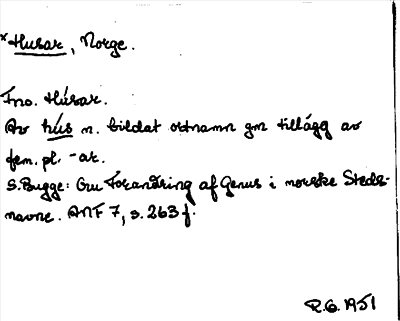 *Husar, Norge.
Fno. Húsar.
Av hús n. bildat ortnamn gm tillägg av
fem. pl. -ar.
S. Bugge: Om Forandring af Genus i norske Steds-
navne. ANF 7, s. 263 f.
R.G. 1951